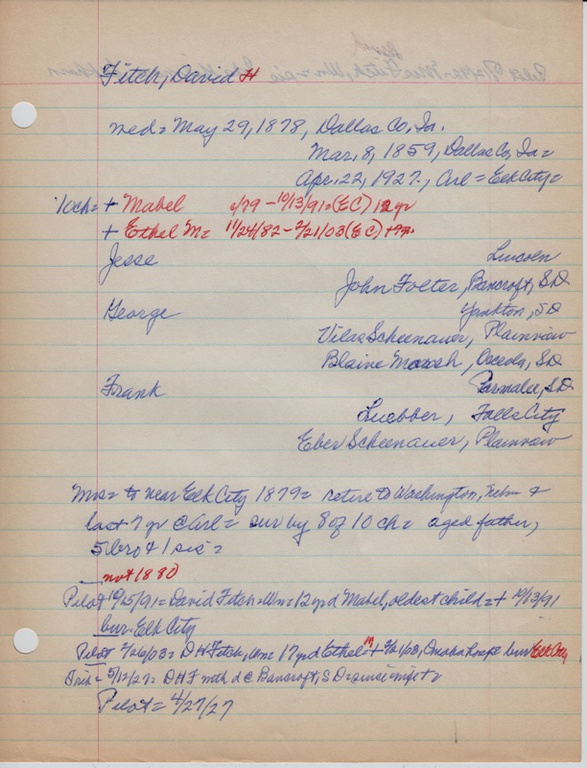 Fitch, David H
med = May 29, 1878, Dallas Co, Ia.
Mar. 8, 1859, Dallas Co, Ia =
Apr. 22, 1927., Arl = Elk City =
10ch = + Mabel /79 - 10/13/91 = (EC) 12 yr
+ Ethel M = 11/24/82 - 2/21/03 (EC)
Jesse Lincoln
John Folter, Bancroft, SD
George Yankton, SD
Vilas Scheenauer, Plainview
Blaine Marsh, Osceola, SD
Frank Parmalee, SD
Luebber, Falls City
Eber Scheenauer, Plainview
Mos = to near Elk City 1879 = retire to Washington, Nebr &
last 7 yr @ Arl = sur by 8 of 10 ch = aged father,
5 bro & 1 sis =
not 1880
Pilot 10/15/91 = David Fitch = Wm = 12 yr d Mabel, oldest child = + 10/13/91
bur Elk City
Pilot 2/26/03 = D H Fitch, Wm = 17 yr d Ethel M + 2/21/03, Omaha hosp = bur Elk City
Trib = 5/12/27 = DHF mth d @ Bancroft, S D =
Pilot = 4/27/27